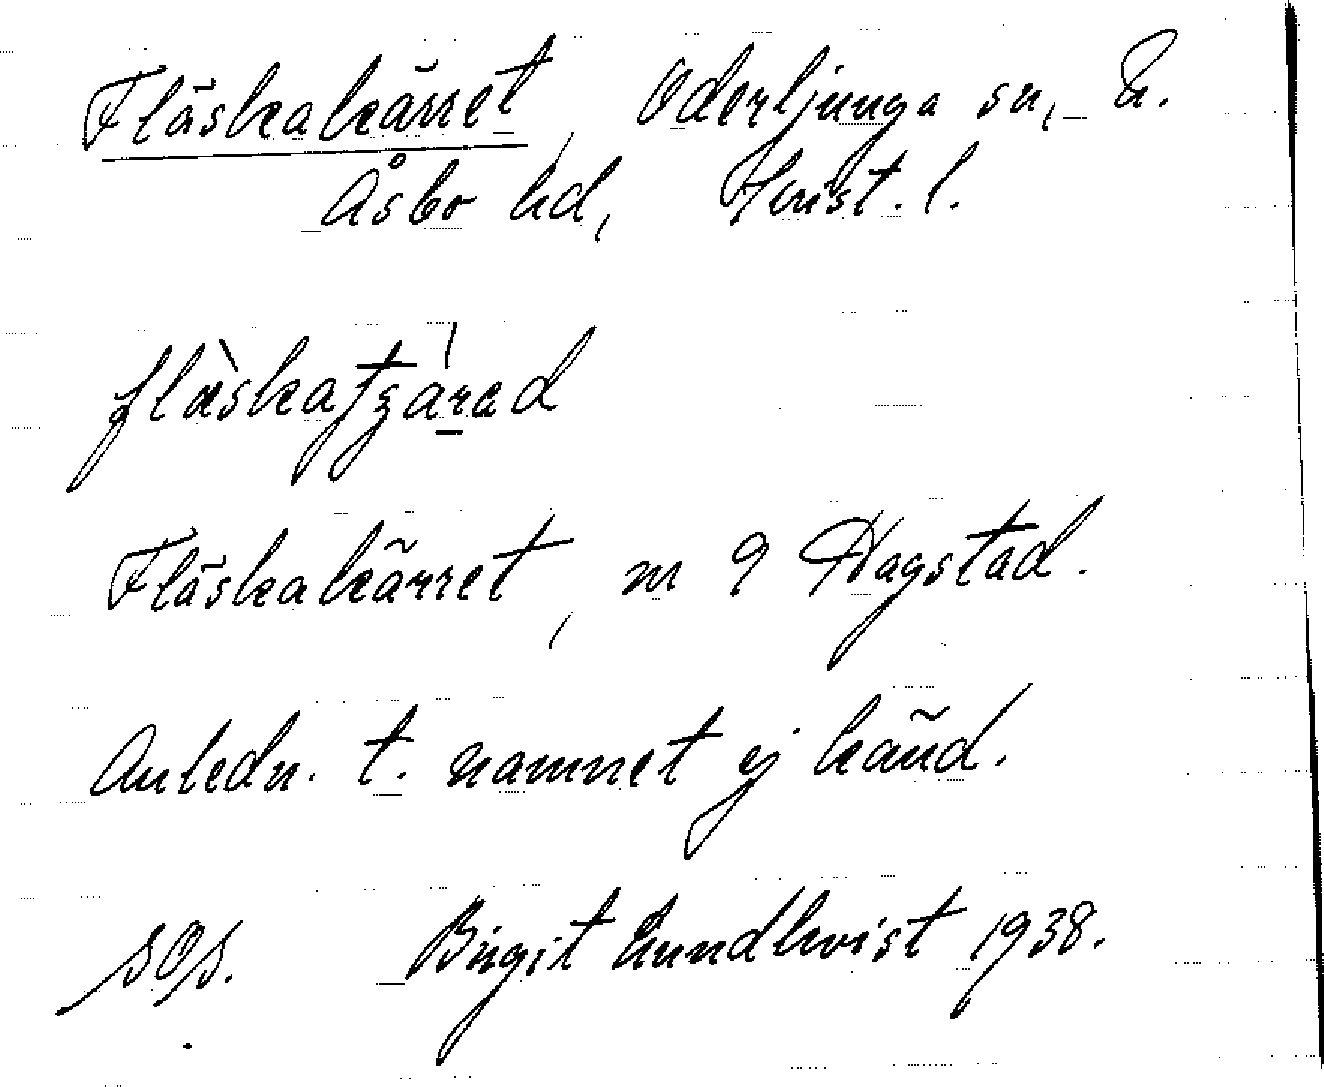 Fläskakärret, Oderljunga sn, N.
Åsbo hd, Krist. l.
Fläskakärret, m 9 Hagstad.
Anledn. t. namnet ej känd.
SOS. Birgit Lundkvist 1938.